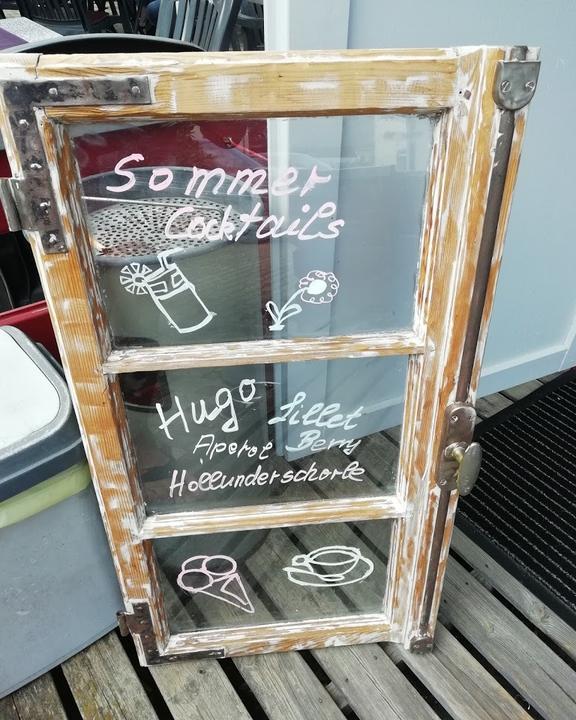 Sommer
Cocktails
Hugo Lillet
Aperol Berry
Hollunderschorle